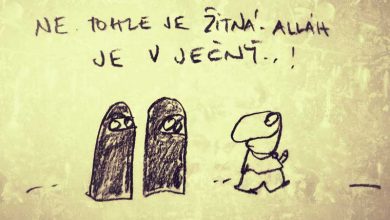 NE. TOHLE JE ŽITNÁ. ALLÁH
JE V JEČNÝ..!